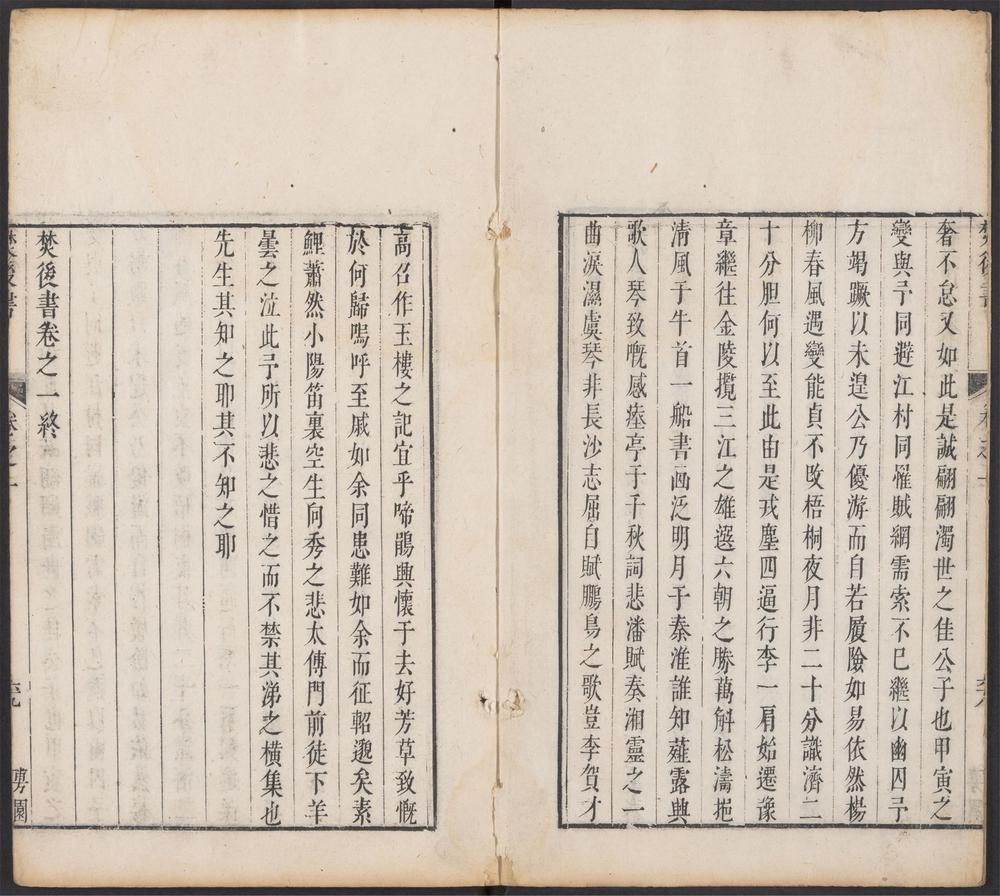 焚後書
卷之一
六八
奢不怠又如此是誠翩翩濁世之佳公子也甲寅之
變與予同避江村同罹賊網需索不已繼以幽囚予
方竭蹶以未遑公乃優游而自若履險如易依然楊
柳春風遇變能貞不改梧桐夜月非二十分識濟二
十分胆何以至此由是戎塵四逼行李一肩始遷豫
章繼往金陵攬三江之雄選六朝之勝萬斛松濤挹
淸風于牛首一船書画泛明月于秦淮誰知薤露興
歌人琴致嘅感瘞亭于千秋詞悲潘賦奏湘靈之一
曲淚濕虞琴非長沙志屈自賦鵩鳥之歌豈李賀才
高召作玉樓之記宜乎啼鵑興懷于去好芳草致慨
於何歸嗚呼至戚如余同患難如余而征軺邈矣素
鯉蕭然小陽笛裏空生向秀之悲太傅門前徒下羊
曇之泣此予所以悲之惜之而不禁其涕之橫集也
先生其知之耶其不知之耶
焚後書卷之一終
焚後書
卷之一
六九
塼園